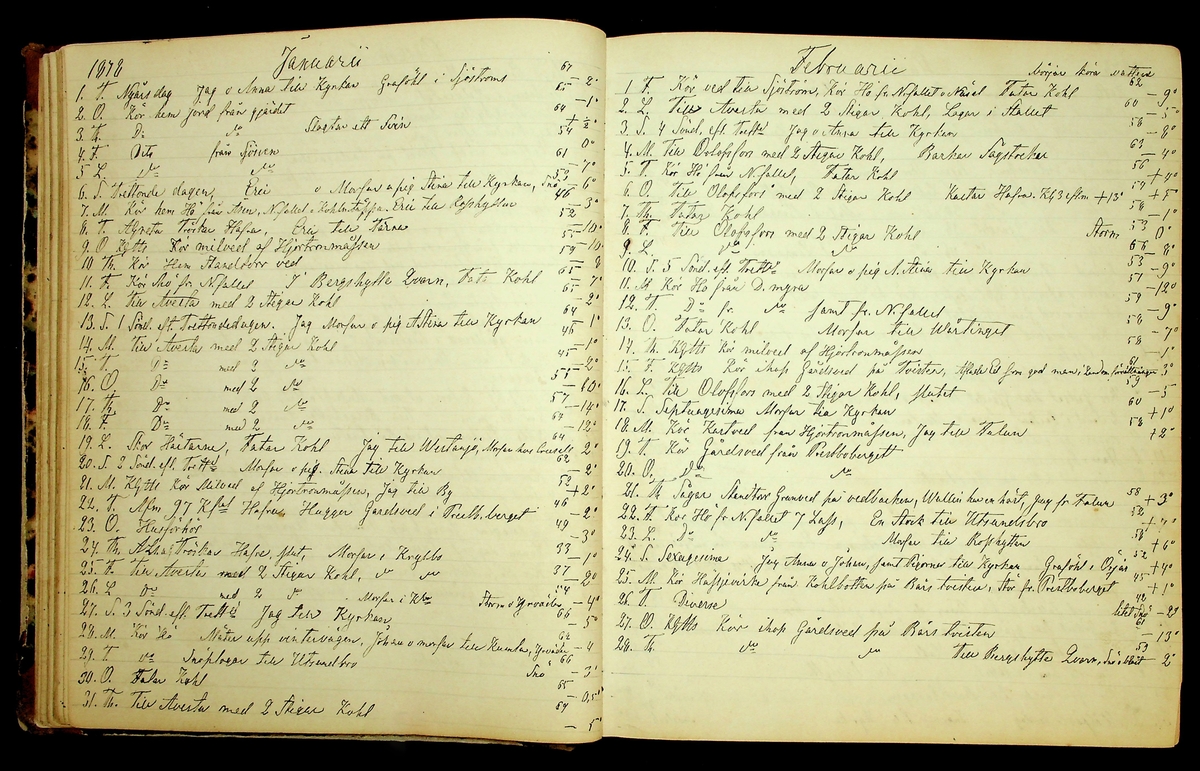 1878 Januarii
1. T. Nyårsdag Jag o Anna till Kyrkan Graföhl i Sjöstroms 67 — 2°
2. O. Kör hem jord från gjärdet 65 — 1°
3. Th. Do do Slagtar ett Svin 64 + ½°
4. F. Dito från Sjöiven 54 0°
5. L. do do 61 — 7°
6. S. Trettonde dagen, Eric o Morfar o pig Stina till Kyrkan, Snö 53 — 6°
7. M. Kör hem Hö från N.fallet o Kohlnstäppa. Eric till Roshyttan 46 — 3°
8. T. Agneta Tröskar Hafra, Eric till Tärna 52 — 10°
9. O. Kytts Kör milved af Hjortronmåssen 55 — 10
10 Th. Kör Hem Standtorr ved 59 — 8
11. F. Kör Hö fr. N.fallet I Bergshytte Qvarn, Fatar Kohl 65 — 7°
12. L. Till Avesta med 2 Stigar Kohl 65 — 2°
13. S. 1 Sönd. eft. Trettondedagen. Jag Morfar o pig A Stina till Kyrkan 64 — 1°
14. M. Till Avesta med 2 Stigar Kohl 46
15. T. Do med 2 do 45 — 2°
16. O. Do med 2 do 51 — 10°
17. Th. Do med 2 do 57 — 14°
18. F. Do med 2 do — 12°
19. L. Skor Hästarne, Fatar Kohl Jag till Westansjö, Morfar hos 64 — 2°
20. S. 2 Sönd. eft. Trett. Morfar o pig. Stina till Kyrkan 62 — 2°
21. M. Kytts Kör Milved af Hjortronmåssen, Jag till By 52 + 2°
22. T. Afm. 97 Kpl Hafra Hugger Gårdsved i Prestb.berget 46 — 2°
23. O. Husförhör 49 — 3°
24. Th. Tröskar Hafre, slut, Morfar i Krylbo 33 — 1°
25. F. Till Avesta med 2 Stigar Kohl, do do 37
26. L. Do med 2 do Morfar i Storm o Yrväder — 4°
27. S. 3 Sönd. eft. Trett. Jag till Kyrkan 66 — 5°
28. M. Kör Hö Näter upp vintervägen, Johan o morfar till Kumla, Yrväder 62 — 4
29. T. do Snöplogar till Utsundsbo 66
30. O. Fatar Kohl Snö 65 — 3°
31. Th. Till Avesta med 2 Stigar Kohl 64 — 5°
Februarii
Börjar köra vatten
1 F. Kör ved till Sjöström, Kör Hö fr. N.fallet o Näset Fatar Kohl 62 — 9°
2. L. Till Avesta med 2 Stigar Kohl, Lagar i Stallet 60 — 5°
3. S. 4 Sönd. eft. Trett. Jag o Anna till Kyrkan 58 — 8°
4. M. Till Olofsfors med 2 Stigar Kohl, Barkar Sågstockar 63 — 4°
5. T. Kör Hö från N.fallet, Fatar Kohl 56 + 4°
6. O. Till Olofsfors med 2 Stigar Kohl Kastar Hafra. Kl. 3 eftm + 13° + 5°
7. Th. Fatar Kohl 58 — 1°
8. F. Till Olofsfors med 2 Stigar Kohl Storm 53 0°
9. L. do do 66 — 8°
10. S. 5 Sönd. eft. Trett. Morfar o pig A. Stina till Kyrkan 53 — 9°
11. M Kör Hö från D. myra 51 — 12°
12. T. Do fr. do samt fr. N.fallet 59 — 9°
13. O. Fatar Kohl Morfar till Wårtinget 58 — 7°
14. Th. Kytts Kör milved af Hjortronmåssen 58 — 1°
15. F. Kytts Kör ihop Gårdsved på Tvisten, Aflade Ed som god man, 61 — 3°
16. L. Till Olofsfors med 2 Stigar Kohl, slutet 59 — 5
17. S. Septuagesima Morfar till Kyrkan 60 + 1°
18. M. Kör Kastved från Hjortronmåssen, Jag till Falun 58 + 2°
19. T. Kör Gårdsved från Prestboberget
20. O. do do
21. Th Sågar Standtorr Granved på vedbacken, Wallin har en häst, Jag fr. Falun 58 + 3°
22. F. Kör Hö fr. N. fallet 7 Lass, En Stock till Utsundsbo 52 + 7°
23. L. Do do Morfar till Roshyttan 58 + 6°
24. S. Sexagesima Jag Anna o Johan, samt Pigorna till Kyrkan Graföhl i Ösjär 52 + 4°
25. M. Kör Hässjevirke från Kohlbotten på Bårs tvisten, Stör fr. Prestboberget 45 + 1°
26. T. Diverse litet Snö 42 — 2°
27. O. Kytts Kör ihop Gårdsved på Bårstvisten 61 — 13°
28. Th. do do Till Bergshytte Qvarn, Snöblåst 53 — 2°